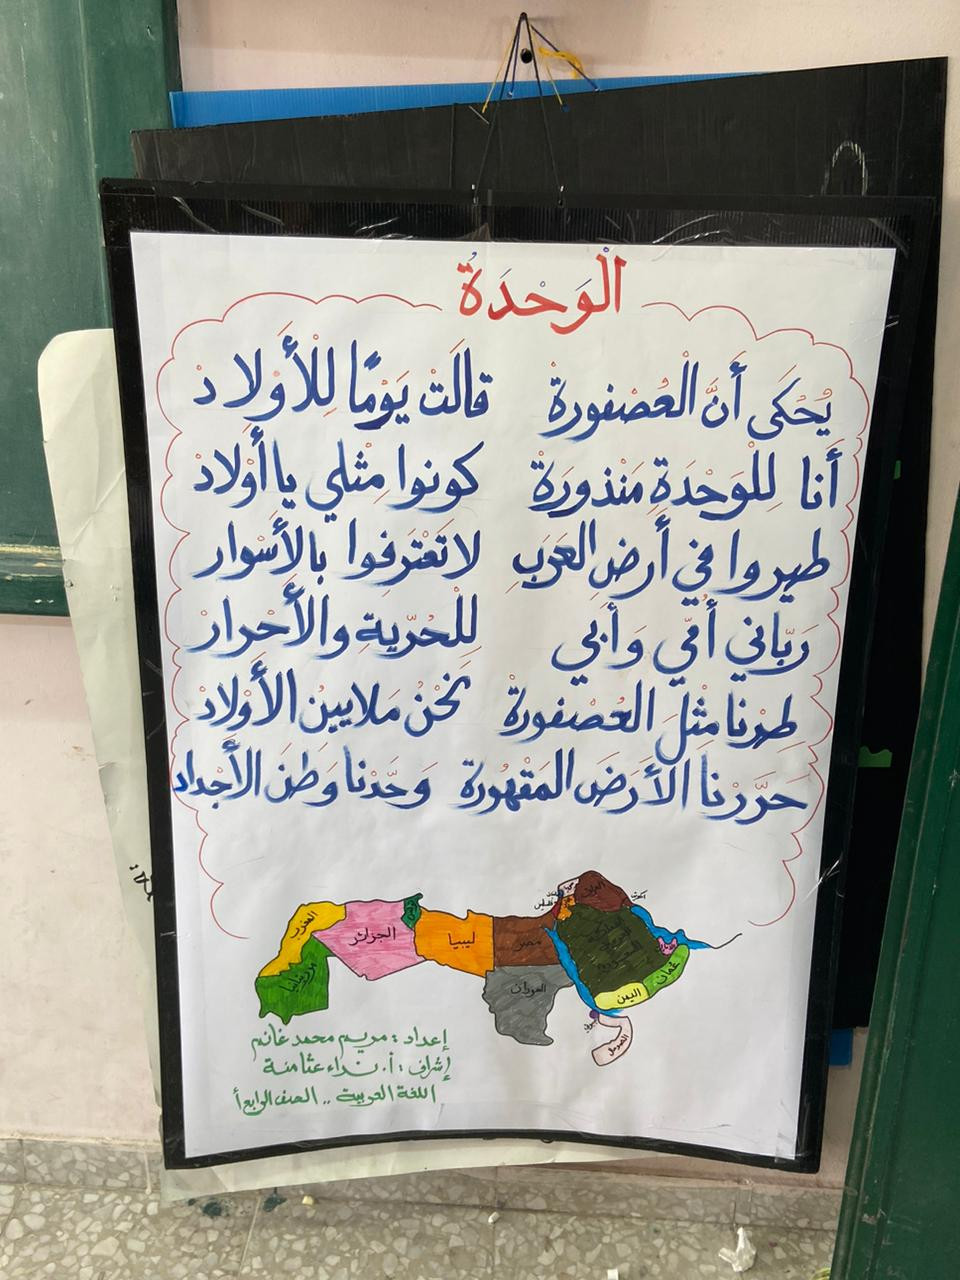 الْوَحْدَةُ
يُحْكَى أَنَّ الْعُصْفورَةْ قالَتْ يَوْمًا لِلْأَوْلادْ
أنا لِلْوَحْدَةِ مَنْذورَةْ كونوا مِثْلي يا أَوْلادْ
طيروا في أَرْضِ العَرَبِ لا تَعْتَرِفوا بالأَسْوار
رَبّاني أُمّي وَأَبي لِلْحُرّية والأَحْرار
طِرْنا مِثْلَ العُصْفورَةْ نَحْنُ مَلايينُ الأَوْلادْ
حَرَّرْنا الأَرْضَ المَقْهورَةْ وَحَّدْنا وَطَنَ الأَجْدادْ
المغرب
موريتانيا
الجزائر
تونس
ليبيا
مصر
السودان
العراق
الكويت
فلسطين
المملكة العربية السعودية
عُمان
اليمن
الصومال
إعداد : مريم محمد غانم
إشراف : أ. نداء عثامنة
اللغة العربية .. الصف الرابع أ